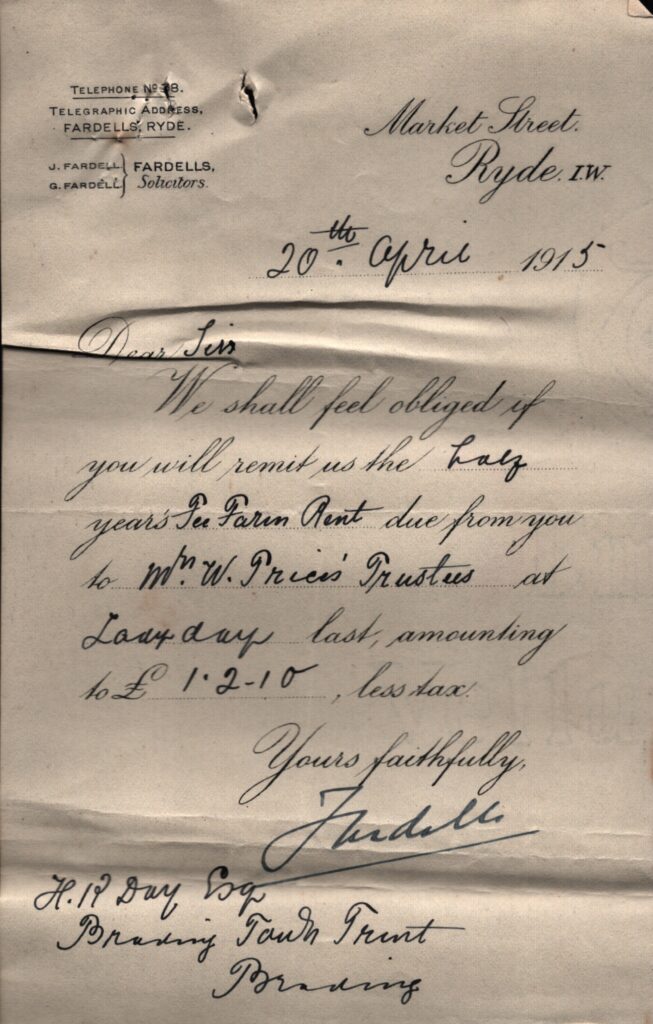 TELEPHONE Nº 38.
TELEGRAPHIC ADDRESS,
FARDELLS, RYDE.
J. FARDELL } FARDELLS,
G. FARDELL } Solicitors.
Market Street.
Ryde. I.W.
20th. April 1915
Dear Sir
We shall feel obliged if
you will remit us the half
year's Fee Farm Rent due from you
to Mrs. W. Price's Trustees at
Lady day last, amounting
to £ 1-2-10, less tax.
Yours faithfully,
Fardells
H. R Day Esq
Brading Town Trust
Brading